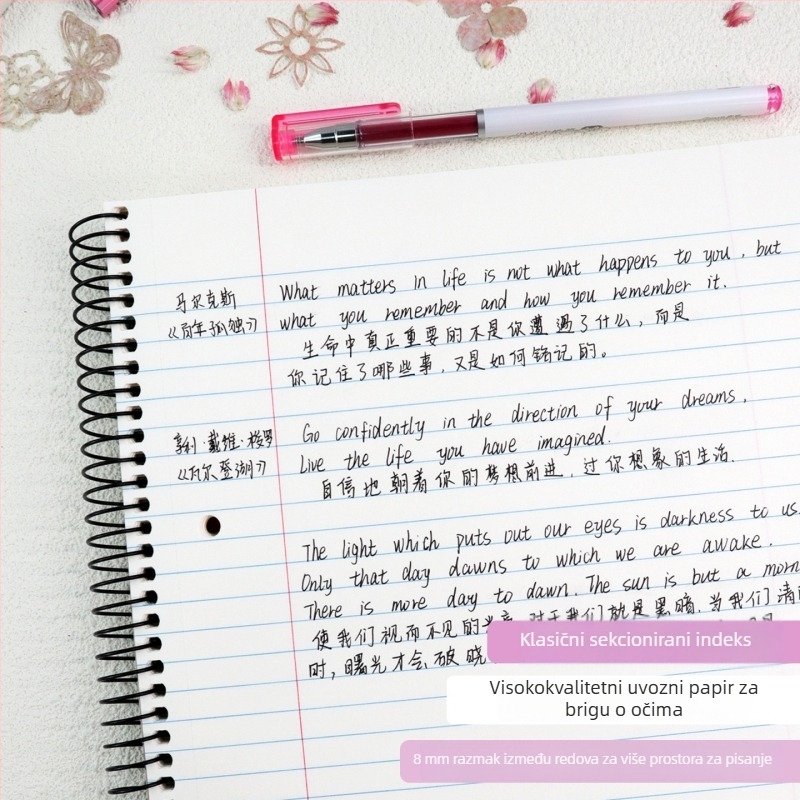 马尔克斯
《百年孤独》
What matters in life is not what happens to you, but
what you remember and how you remember it.
生命中真正重要的不是你遭遇了什么，而是
你记住了哪些事，又是如何铭记的。
亨利·戴维·梭罗
《瓦尔登湖》
Go confidently in the direction of your dreams,
Live the life you have imagined.
自信地朝着你的梦想前进，过你想象的生活.
The light which puts out our eyes is darkness to us.
Only that day dawns to which we are awake.
There is more day to dawn. The sun is but a morn
使我们视而不见的光亮，对于我们就是黑暗.当我们清
时，曙光才会破晓
Klasični sekcionirani indeks
Visokokvalitetni uvozni papir za
brigu o očima
8 mm razmak između redova za više prostora za pisanje